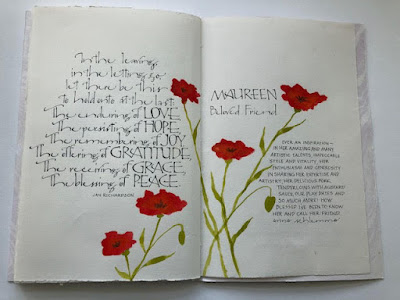 In the leaving,
in the letting go,
let there be this
to hold onto at the last.
The enduring of LOVE
The persisting of HOPE
The remembering of JOY
The offering of GRATITUDE
The receiving of GRACE
The blessing of PEACE.
JAN RICHARDSON
MAUREEN
Beloved Friend
EVER AN INSPIRATION—
IN HER AMAZING AND MANY
ARTISTIC TALENTS, IMPECCABLE
STYLE AND VITALITY, HER
ENTHUSIASM AND GENEROSITY
IN SHARING HER EXPERTISE AND
ARTISTRY, HER DELICIOUS PORK
TENDERLOIN WITH MUSTARD
SAUCE, OUR PLAY DATES AND
SO MUCH MORE! HOW
BLESSED I'VE BEEN TO KNOW
HER AND CALL HER FRIEND!